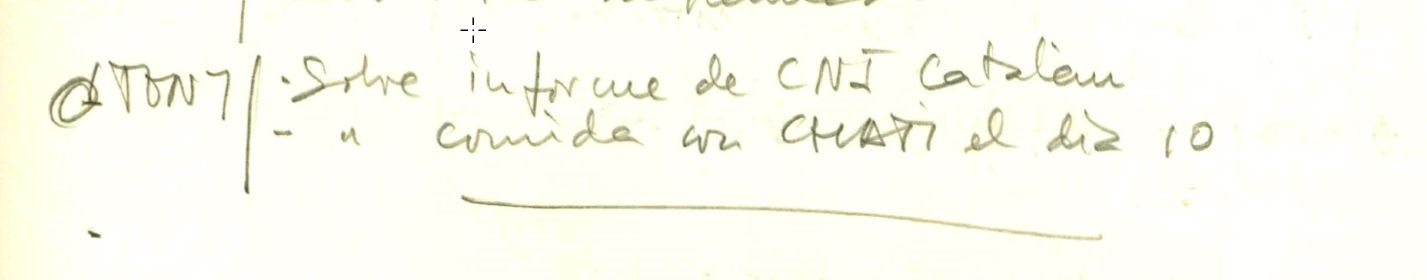 @ TONY / · Sobre informe de CNI Catalán
- " comida con CHATI el día 10